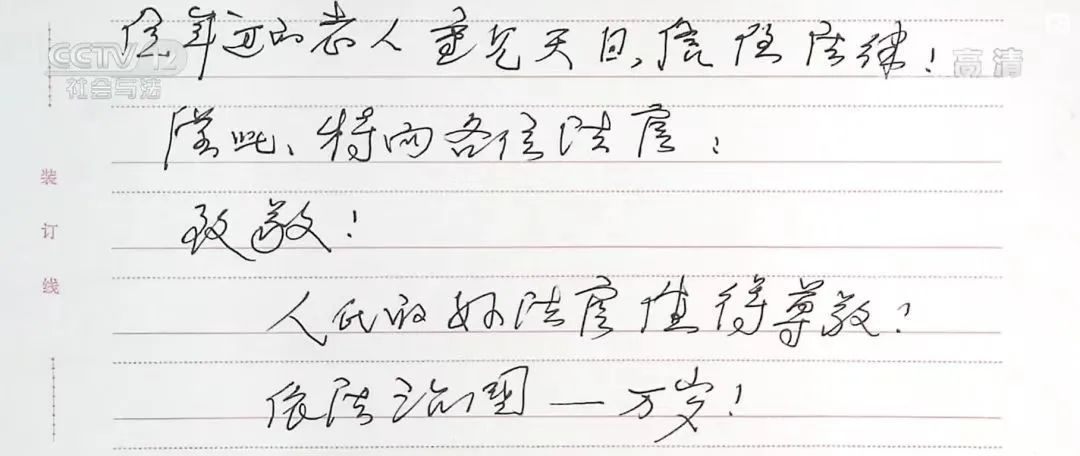 使年迈的老人重见天日,信随法律!
CCTV 12
社会与法
高清
鉴此、特向各位法官:
致敬!
人民的好法官值得尊敬!
依法治国—万岁!
装订线